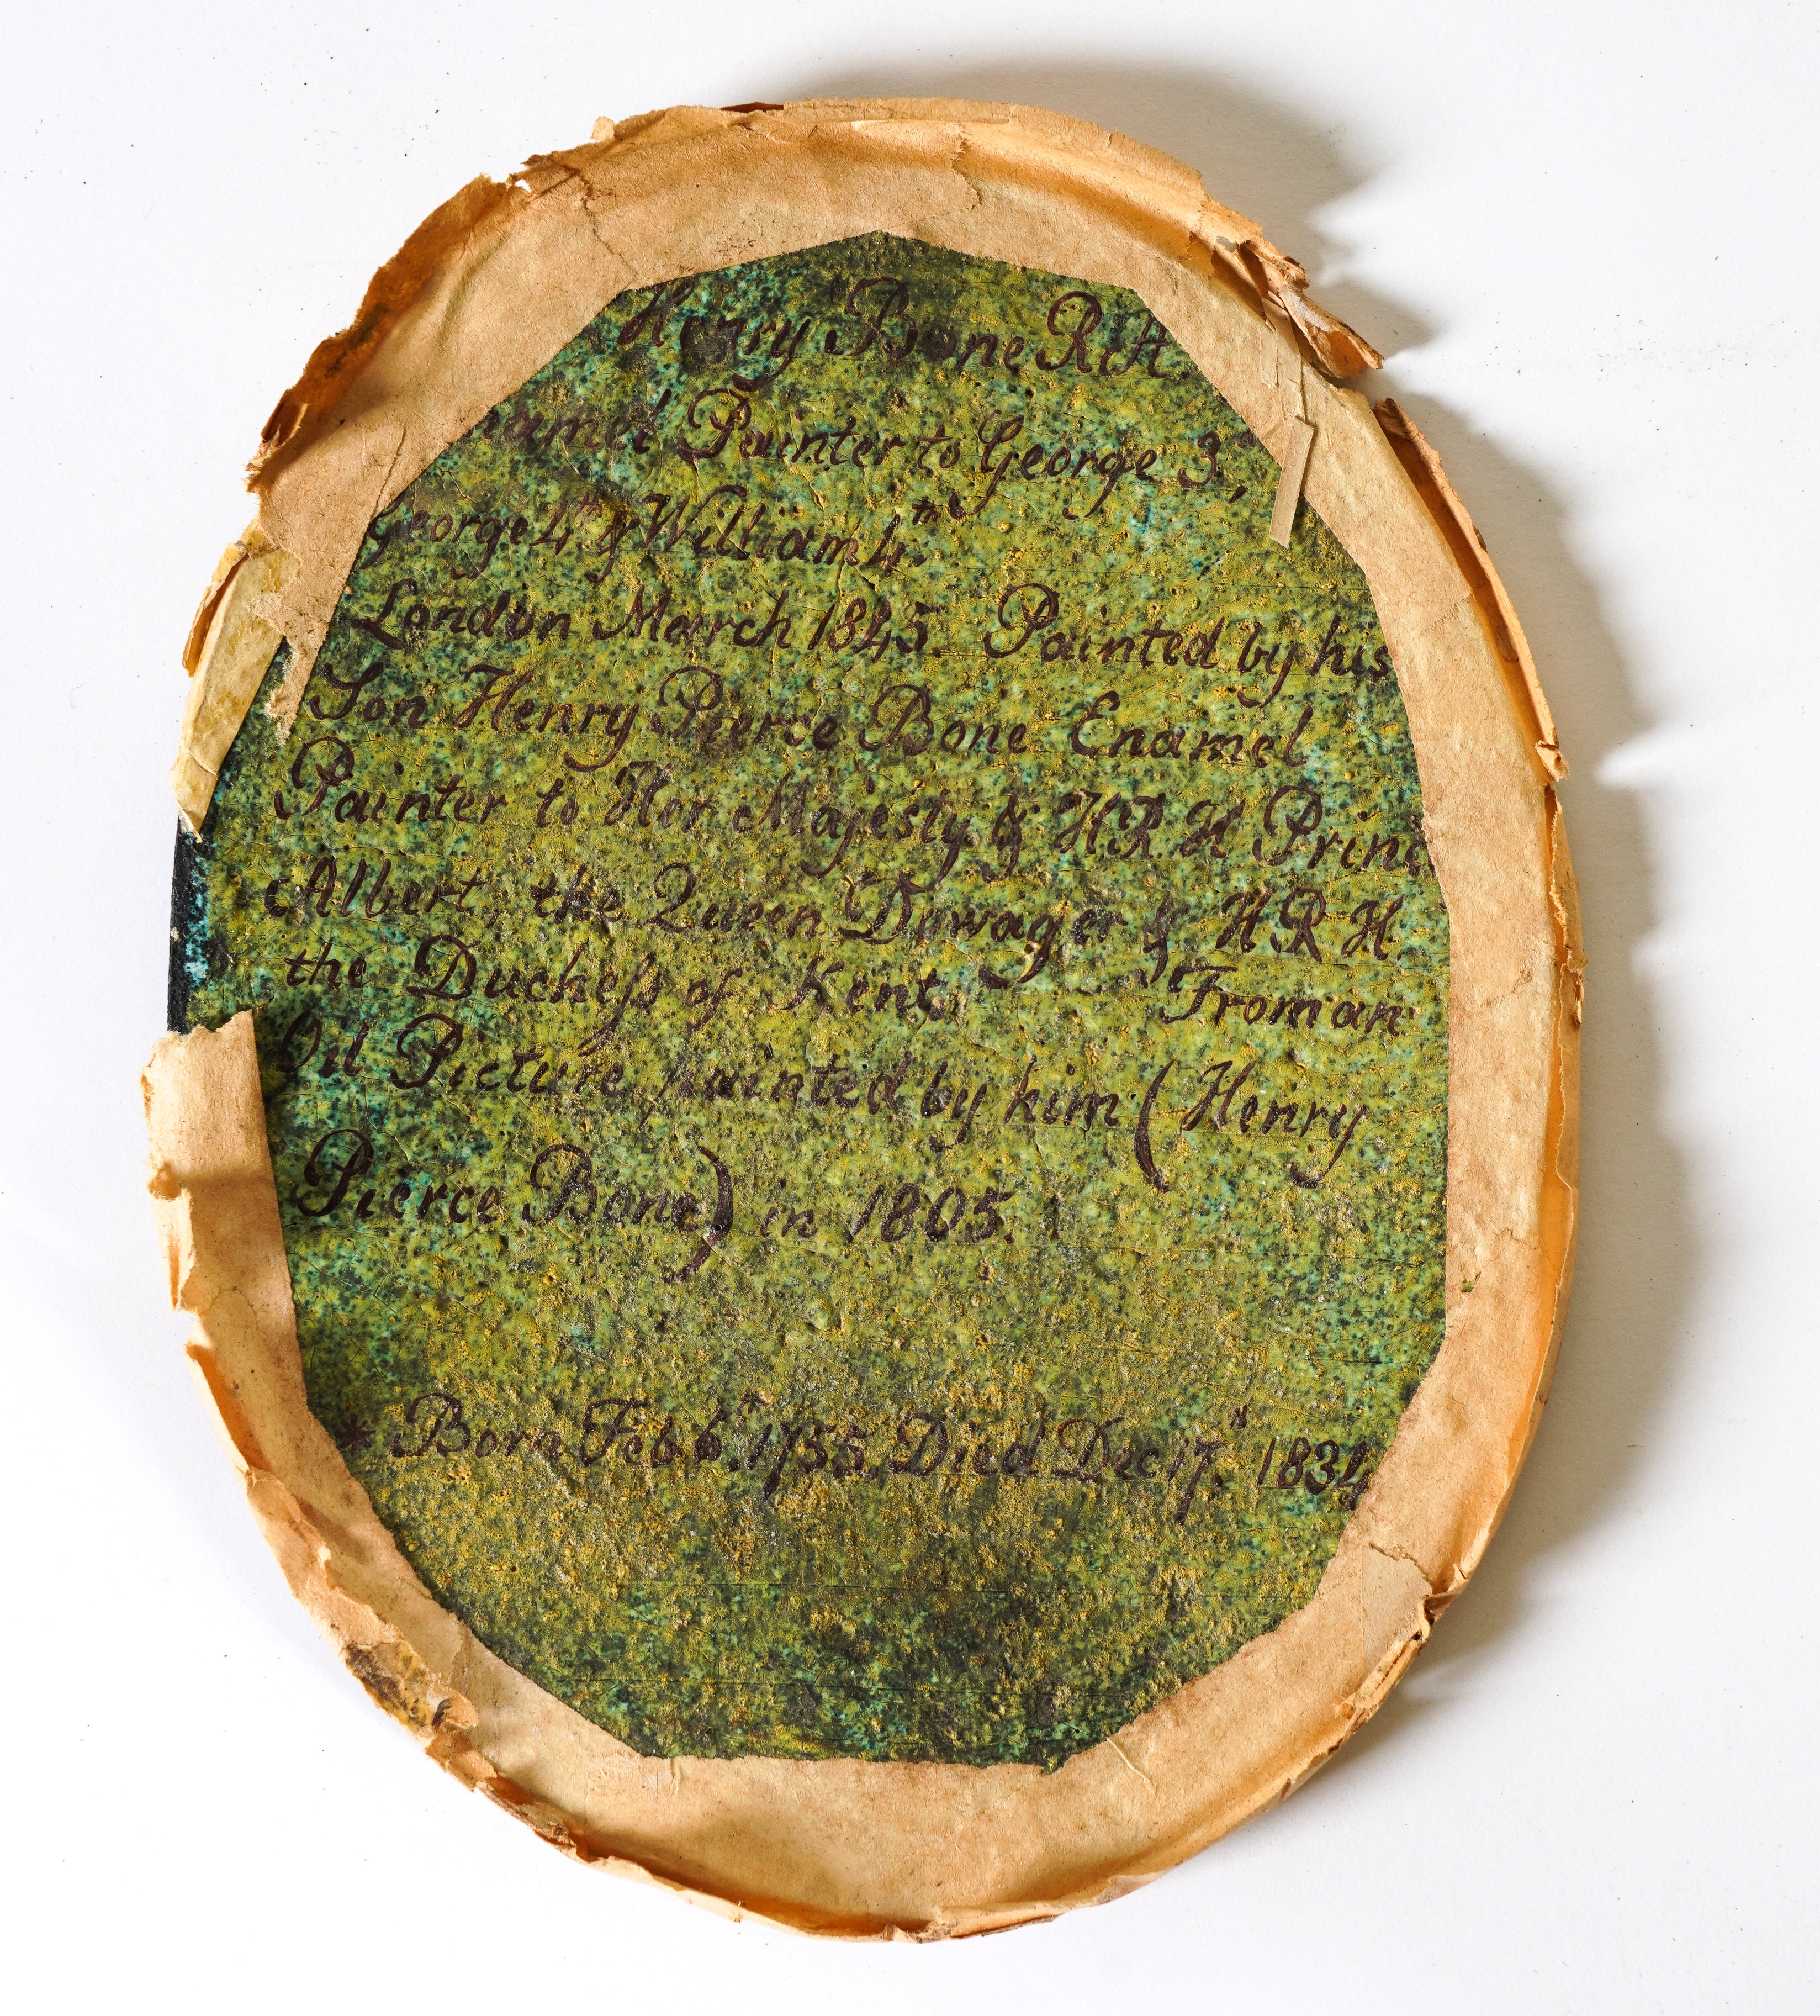 Henry Bone R.A.
amel Painter to George 3.,
George 4.th & William 4.th
London March 1845. Painted by his
Son Henry Pierce Bone Enamel
Painter to Her Majesty & H R H Princ
Albert, the Queen Dowager & H R H.
the Duchefs of Kent. From an
Oil Picture painted by him (Henry
Pierce Bone) in 1805.
* Born Feb 6.th 1755, Died Dec 17.th 1834